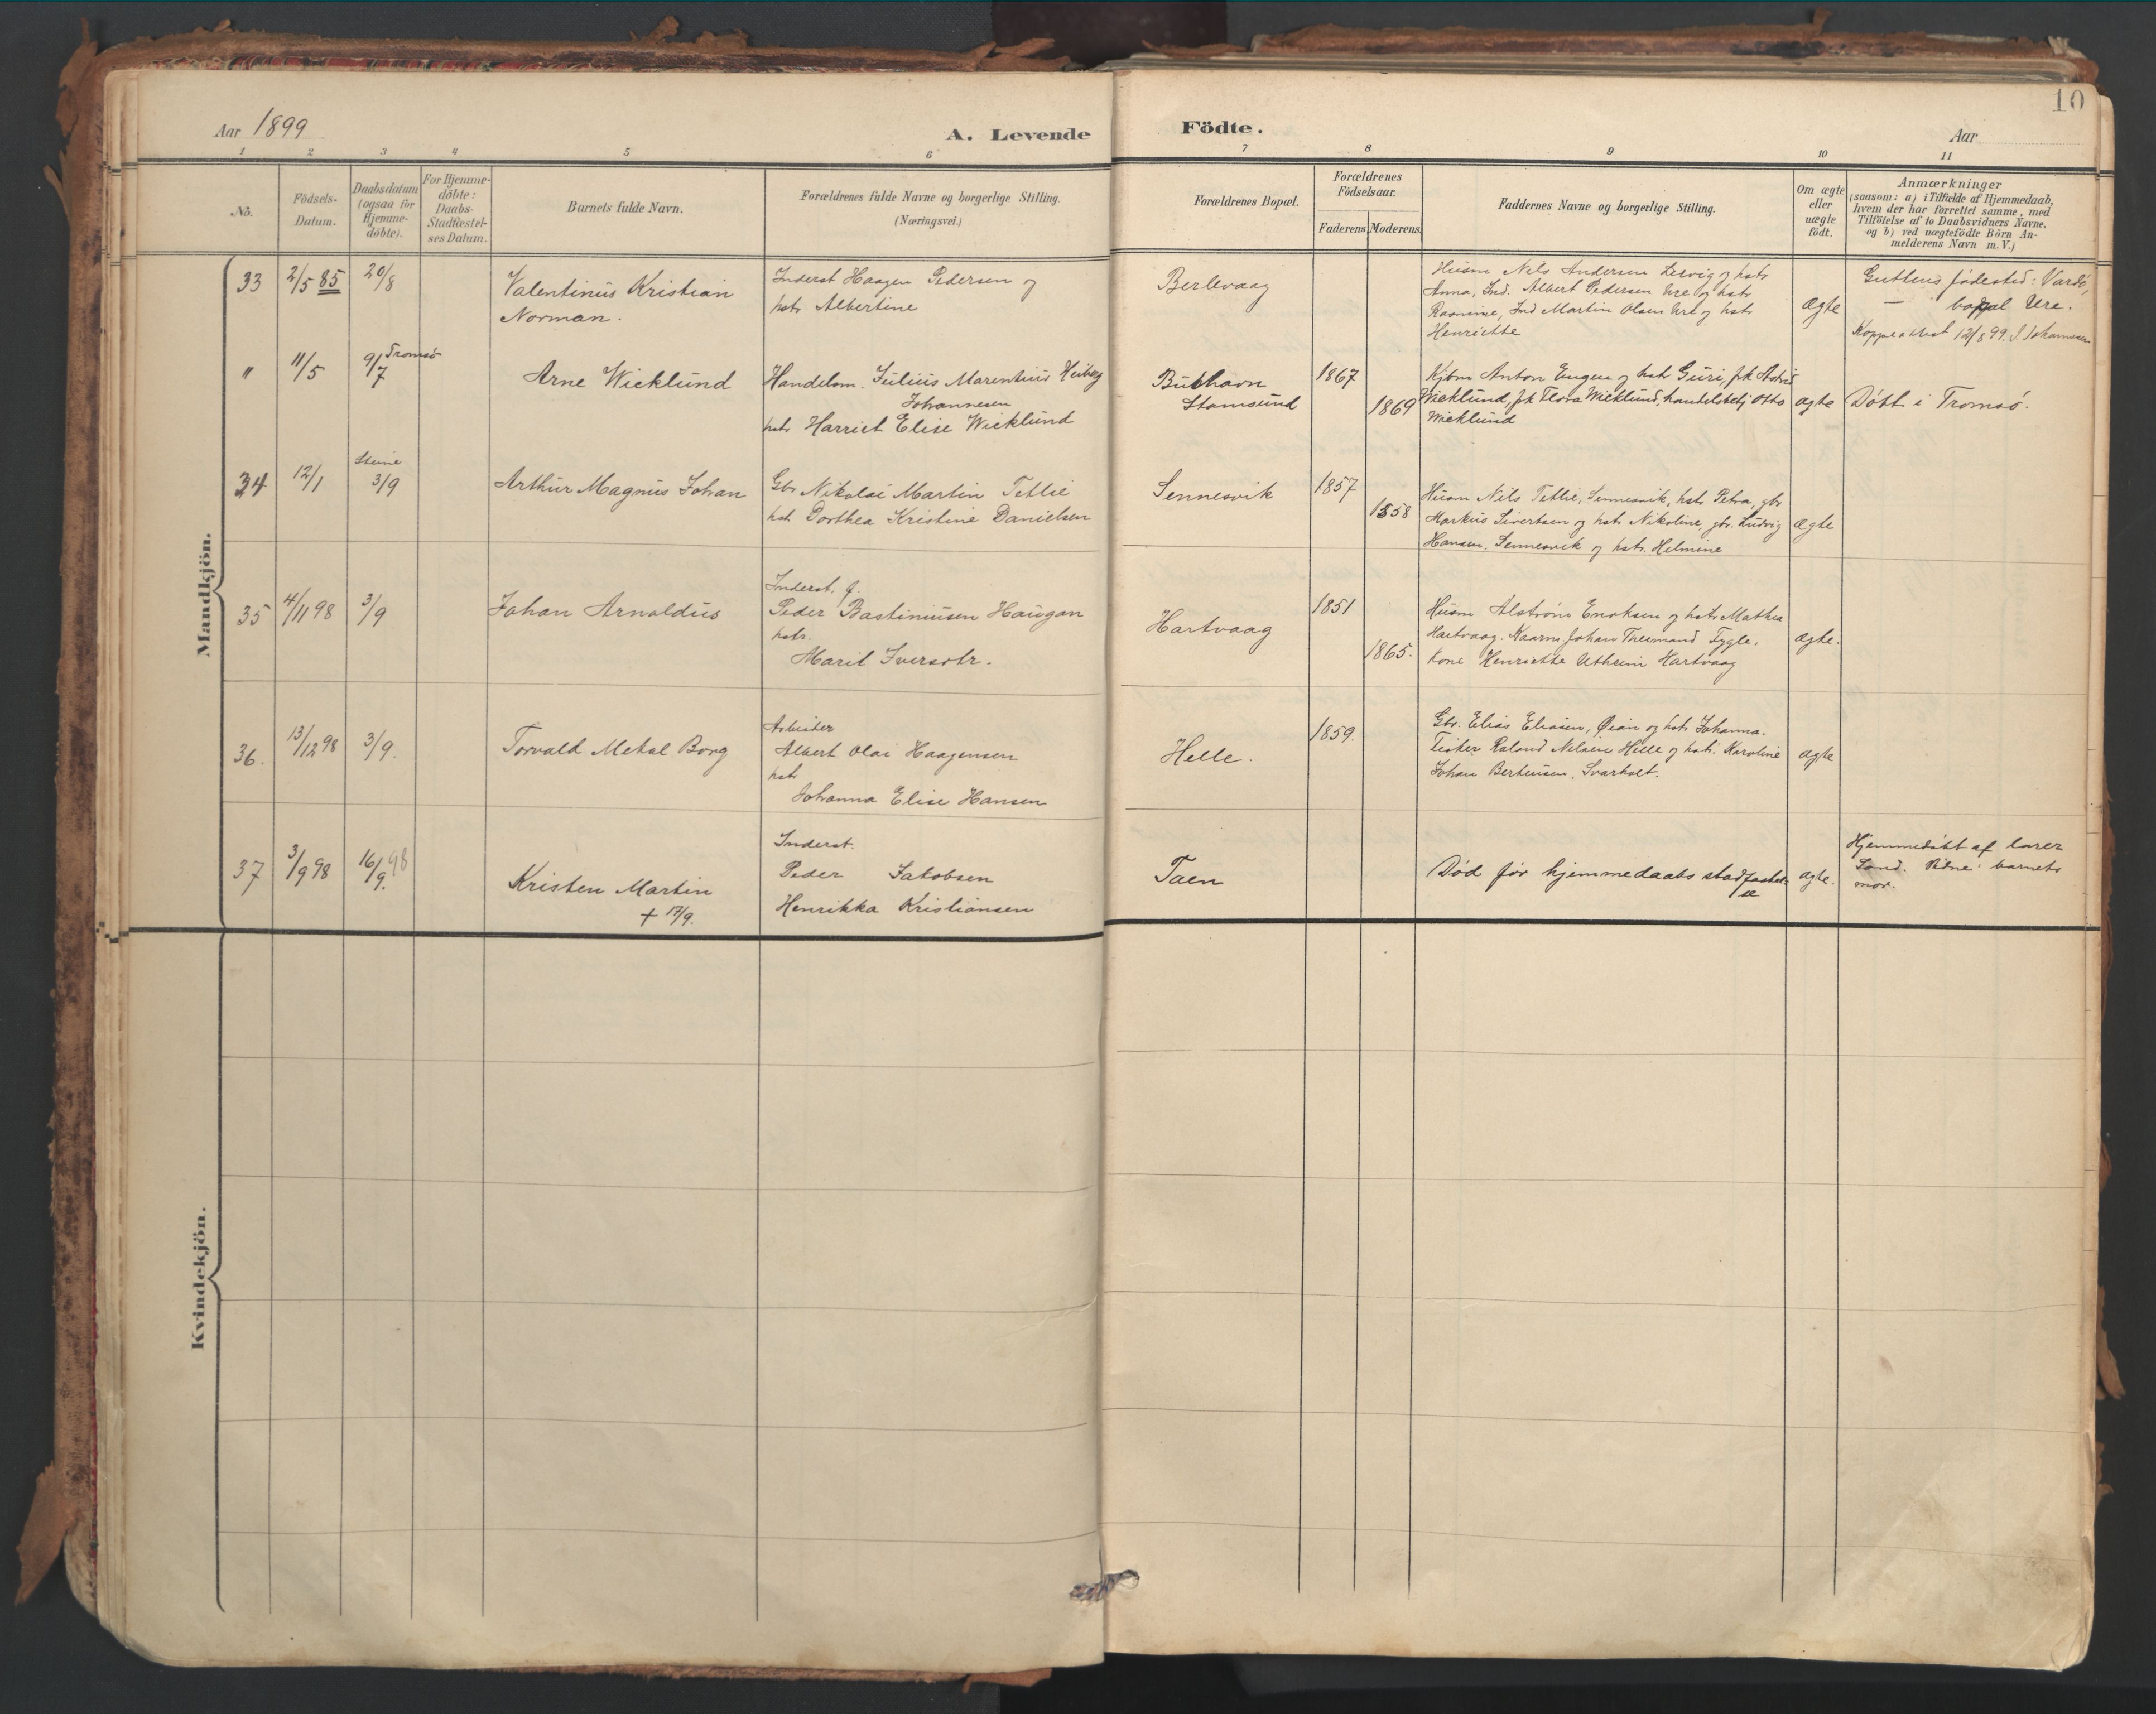 10
Aar 1899
A. Levende
Födte.
Aar
1 2 3 4 5 6 7 8 9 10 11
No.
Födsels-Datum.
Daabsdatum (ogsaa for Hjemme-döbte).
For Hjemme-döbte: Daabs-Stadfæstel-ses Datum.
Barnets fulde Navn.
Forældrenes fulde Navne og borgerlige Stilling.
(Næringsvei.)
Forældrenes Bopæl.
Forældrenes Födselsaar.
Faderens Moderens
Faddernes Navne og borgerlige Stilling.
Om ægte eller uægte födt.
Anmærkninger
(saasom: a) i Tilfælde af Hjemmedaab,
hvem der har forrettet samme, med
Tilföielse af to Daabsvidners Navne,
og b) ved uægtefödte Börn An-
melderens Navn m. V.)
Mandkjön.
33 2/5 85 20/8
Valentinus Kristian
Norman.
Inderst Haagen Pedersen og
hstr Albertine
Berlevaag
Husm Nils Andersen og hstr
Anna, Ind. Albert Pedersen Ure og hstr
Rasmine, Ind Martin Olsen Ure og hstr
Henriette
ægte
Guttens födested: Vardö,
— bopæl Ure.
Koppeattest 12/8 99. J. Johannessen
" 11/5 9/7 Tromsö
Arne Wicklund
Handelsm. Julius Marentius Heiberg
Johannesen
hstr Harriet Elise Wicklund
Buthavn
Stamsund
1867
1869
Kjbm Anton Eugen og hstr Guri, frk Astrid
Wicklund, frk Flora Wicklund, handelsbetj Otto
Wicklund
ægte
Döbt i Tromsö.
34 12/1 Steine 3/9
Arthur Magnus Johan
Gbr Nikolai Martin Tetlie
hst Dorthea Kristine Danielsen
Sennesvik
1857
1858
Husm Nils Tetlie, Sennesvik, hstr Petra, gbr
Markus Sivertsen og hstr Nikoline, gbr. Ludvig
Hansen, Sennesvik og hstr. Helmine
ægte
35 4/11 98 3/9
Johan Arnoldus
Inderst, f.
Peder Bastiniusen Haugan
hstr.
Marit Iversdtr.
Hartvaag
1851
1865.
Husm Alström Enoksen og hstr Mathea
Hartvaag. Johan Tygle.
Kone Henriette Hartvaag
ægte.
36. 13/12 98 3/9.
Torvald Metal Borg
Arbeider
Albert Olai Haagensen
hstr
Johanna Elise Hansen
Helle.
1859.
Gbr. Elias Eliasen, Øian og hstr Johanna.
Fisker Roland Nilsen Helle og hstr. Karoline
Johan Berteusen, Svarholt.
ægte
37 3/9 98 16/9. 98
Kristen Martin
+ 17/9.
Inderst.
Peder Jakobsen
Henrikka Kristiansen
Taen
Död för hjemmedaabs stadfæstel-
se
ægte.
Hjemmedöbt af lærer
Sand. Vidne: barnets
mor.
Kvindekjön.